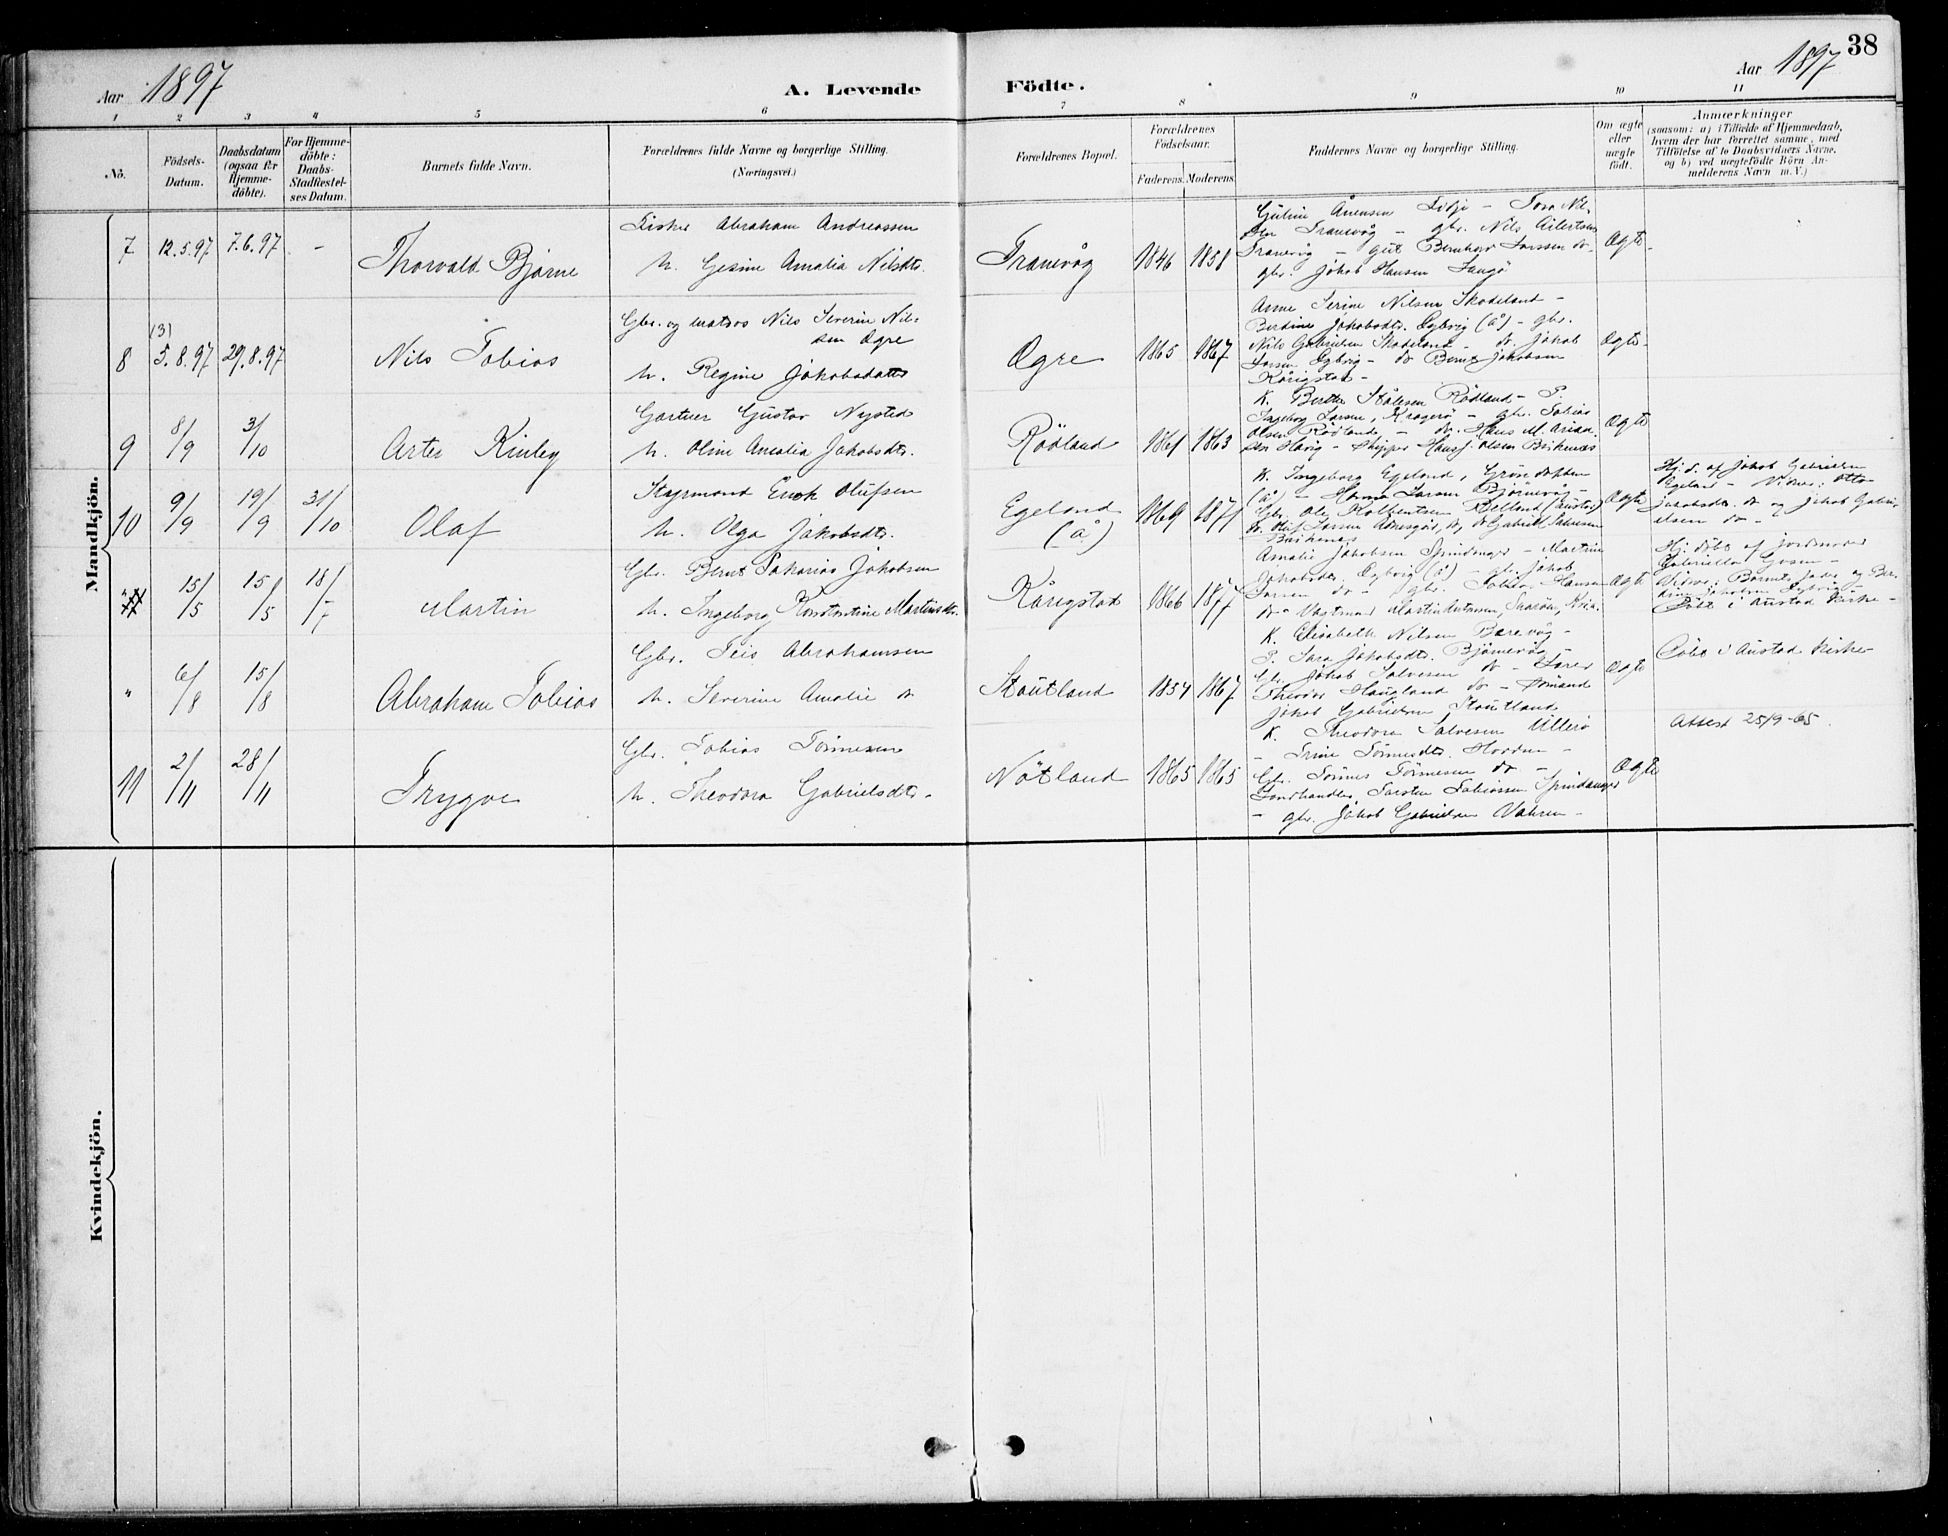 38
Aar 1897
A. Levende Födte.
Aar 1897
1 2 3 4 5 6 7 8 9 10 11
No.
Födsels-Datum.
Daabsdatum (ogsaa för Hjemme-döbte).
For Hjemme-döbte: Daabs-Stadfæstel-ses Datum.
Barnets fulde Navn.
Forældrenes fulde Navne og borgerlige Stilling. (Næringsvei.)
Forældrenes Bopæl.
Forældrenes Födselsaar.
Faderens. Moderens.
Faddernes Navne og borgerlige Stilling.
Om ægte eller uægte födt.
Anmærkninger
(saasom: a) i Tilfælde af Hjemmedaab,
hvem der har forrettet samme, med
Tilföielse af to Daabsvidners Navne,
og b) ved uægtefödte Börn An-
melderens Navn m. V.)
Mandkjön.
7 12.5.97 7.6.97 -
Thorvald Bjarne
Fisker Abraham Andreassen
h. Gesine Amalia Nilsdtr.
Tranevåg 1846 1851
Tranevåg - gbr. Nils Eilertsen
gbr. Jakob Hansen Langö
Ægte
8 (3) 5.8.97 29.8.97
Nils Tobias
Gbr. og matros Nils Severin Nil-
sen Ogre
h. Regine Jakobsdatter
Ogre 1865 1867
Anne Serine Nilsen Skodeland -
Berdine Jakobsdtr. Eybvig (å) - gbr.
Nils Gabrielsen Skodeland - do. Jakob
Larsen Eybvig - do Bernt Jakobsen
Kårigstad -
Ægte
9 8/9 3/10
Arter Kinley
Gartner Gustav Nysted
h. Oline Amalia Jakobsdtr.
Rödland 1861 1863
K. Berthe Stålesen Rödland - P.
Ingeborg Larsen, Kragerö - gbr. Tobias
Olsen Rödland - do. Hans M. Arian-
sen Havig - Skipper Hans J. Olsen Birkenes
Ægte
10 9/9 19/9 31/10
Olaf
Styrmand Erik Olufsen
h. Olga Jakobsdtr.
Egeland (å) 1869 1877
K. Ingeborg Egeland,
(å) - Hanna Larsen Björnevåg -
Gbr. Ole Kolbentsen Belland (Austad)
Birkenes
Ægte
Hj. d. af Jakob Gabrielsen
Egeland - Vidner: Otto
Jakobsdtr. do og Jakob Gabri-
elsen do -
" 15/5 15/5 18/7
Martin
Gbr. Bernt Sakarias Jakobsen
h. Ingeborg Konstantine Martinsdtr.
Kårigstad 1866 1877
Amalie Jakobsen Spindanger - Martine
Jakobsdtr. Eybvig (å) - gbr. Jakob
Larsen do - gbr. Tobias Hansen
Ægte
Hj. döbt af jordmoder
Gabriella Gosen -
Vidner: Barnets fader og Ber-
dine Jakobsen Eybvig -
Döbt i Austad Kirke -
" 6/8 15/8
Abraham Tobias
Gbr. Teis Abrahamsen
h. Severine Amalie do
Stoutland 1854 1867
K. Elisabeth Nilsen Barevåg -
P. Sara Jakobsdtr. Björnevåg -
Gbr. Jakob Salvesen do - Lærer
Theodor Haugland do - Sömand
Jakob Gabrielsen Stoutland
Ægte
Döbt i Austad Kirke -
11 2/11 28/11
Trygve
Gbr. Tobias Tönnesen
h. Theodora Gabrielsdtr.
Nötland 1865 1865
K. Theodora Salvesen Ullerö
- Trine Tönnesdtr. Hordnes -
Gbr. Tönnes Tönnesen do -
Landhandler Torsten Tobiassen Spindanger
- gbr. Jakob Gabrielsen Vatne -
Ægte
Attest 25/9-65.
Kvindekjön.